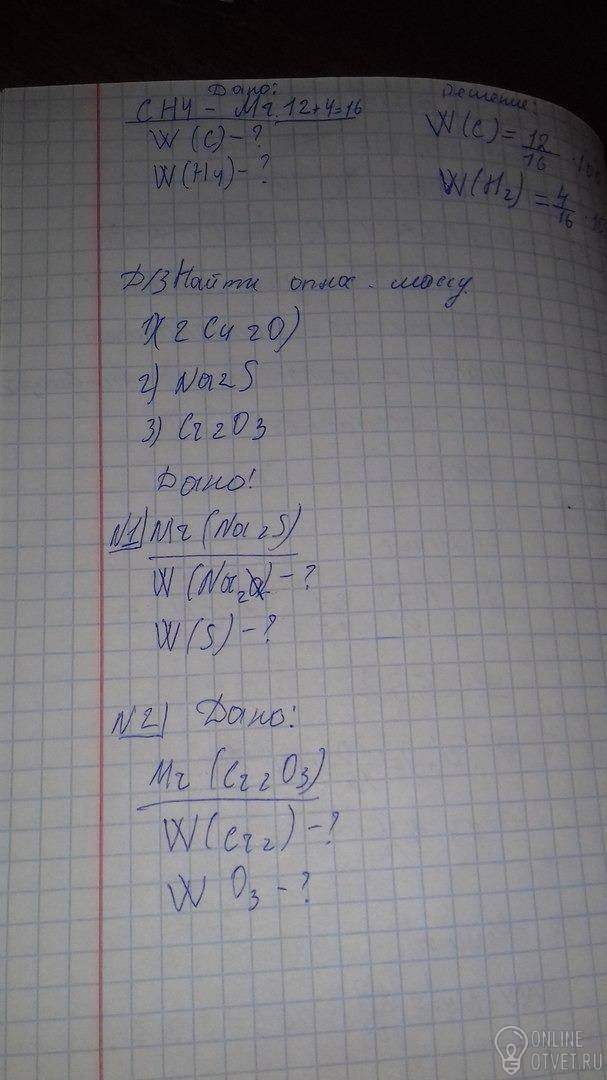 Дано:
CH4 - Mr. 12+4=16
W (C) - ?
W(H4) - ?
Решение:
W(C) = 12/16 · 100
W(H2) = 4/16 ·
Д/З Найти масссу
1) (2 Cu2O)
2) Na2S
3) Cr2O3
Дано!
N1) Mr (Na2S)
W (Na2) - ?
W(S) - ?
N2) Дано:
Mr (Cr2O3)
W(Cr2) - ?
W O3 - ?
ONLINE
OTVET.RU